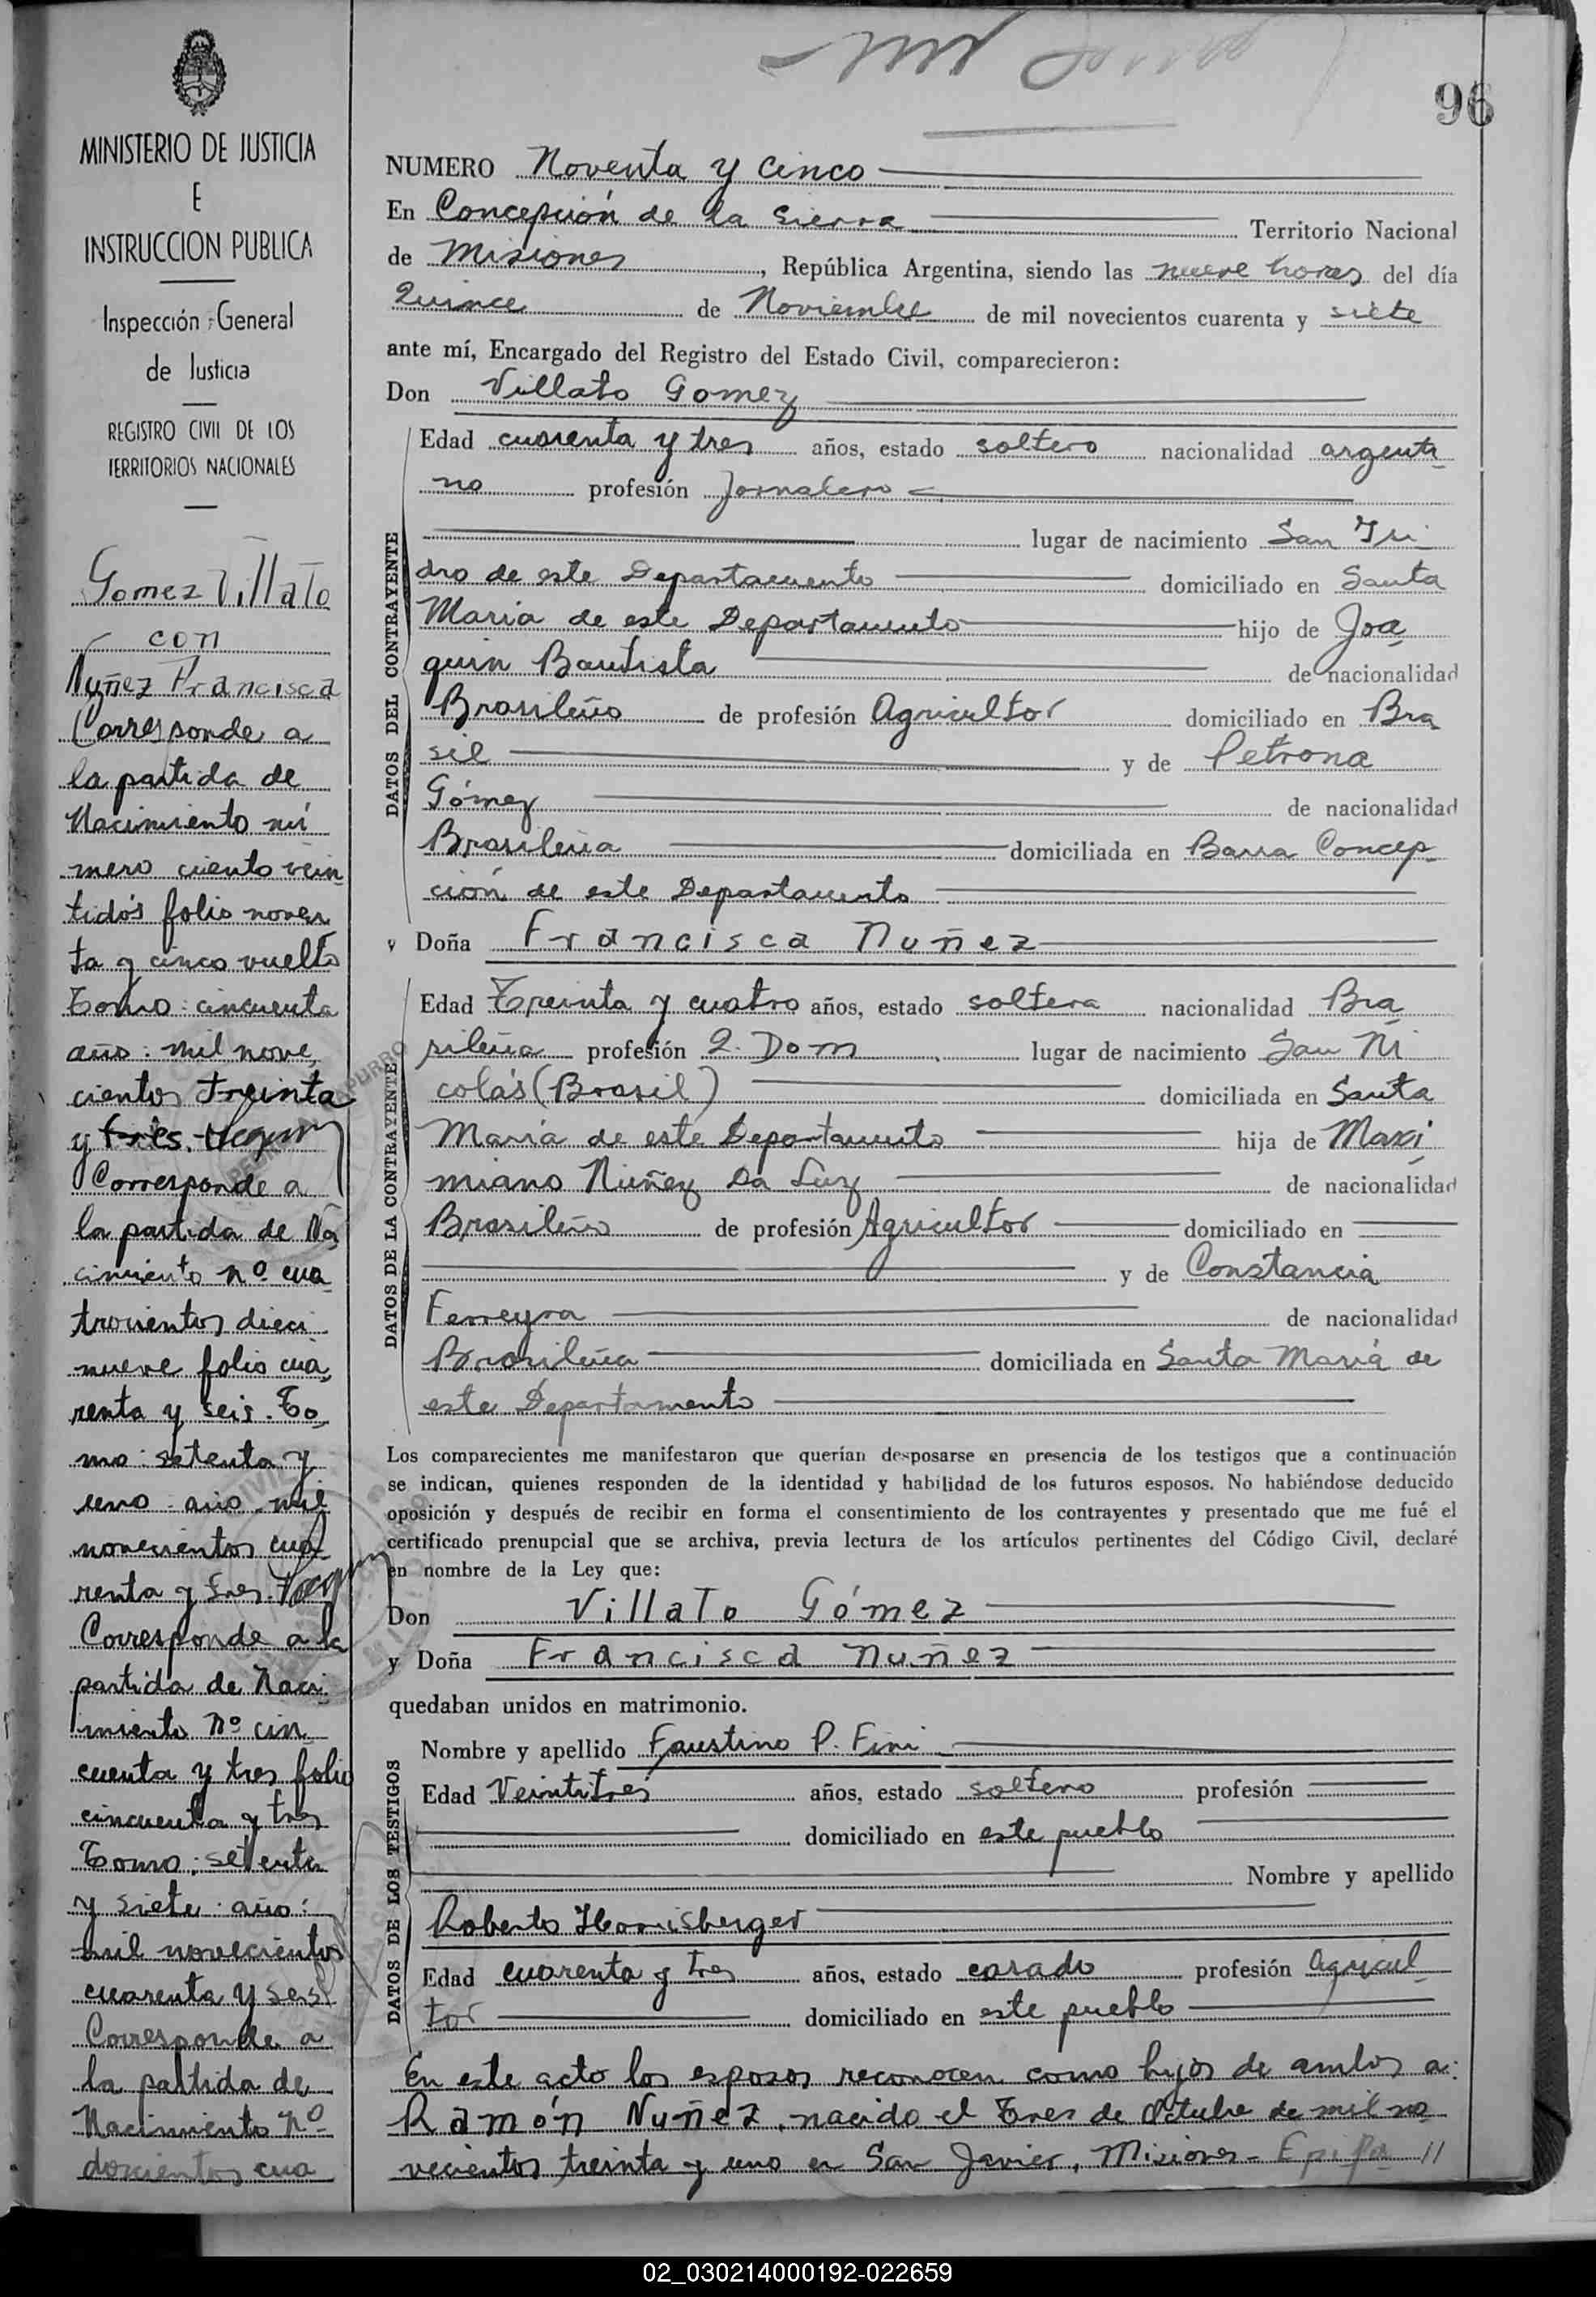 96
MINISTERIO DE JUSTICIA
E
INSTRUCCION PUBLICA
Inspección General
de Justicia
REGISTRO CIVIL DE LOS
TERRITORIOS NACIONALES
Gomez Villato
con
Nuñez Francisca
Corresponde a
la partida de
Nacimiento nú
mero ciento vein
tidós folio noven
ta y cinco vuelto
Tomo: cincuenta
año: mil nove
cientos treinta
y tres.
Corresponde a
la partida de Na
cimiento nº cua
trocientos dieci
nueve folio cua
renta y seis. To
mo: setenta y
uno año mil
novecientos cua
renta y tres.
Corresponde a la
partida de Naci
miento Nº cin
cuenta y tres folio
cincuenta y tres
Tomo: setenta
y siete año:
mil novecientos
cuarenta y seis
Corresponde a
la partida de
Nacimiento Nº
doscientos cua
NUMERO Noventa y cinco
En Concepción de la Sierra Territorio Nacional
de Misiones, República Argentina, siendo las nueve horas del día
Quince de Noviembre de mil novecientos cuarenta y siete
ante mí, Encargado del Registro del Estado Civil, comparecieron:
Don Villato Gomez
DATOS DEL CONTRAYENTE
Edad cuarenta y tres años, estado soltero nacionalidad argenti
no profesión Jornalero
lugar de nacimiento San Isi
dro de este Departamento domiciliado en Santa
Maria de este Departamento hijo de Joa
quin Bautista de nacionalidad
Brasileño de profesión Agricultor domiciliado en Bra
sil y de Petrona
Gómez de nacionalidad
Brasileña domiciliada en Barra Concep
ción de este Departamento
y Doña Francisca Nuñez
DATOS DE LA CONTRAYENTE
Edad Treinta y cuatro años, estado soltera nacionalidad Bra
sileña profesión Q. Dom. lugar de nacimiento San Ni
colás (Brasil) domiciliada en Santa
Maria de este Departamento hija de Maxi
miano Nuñez Da Luz de nacionalidad
Brasileño de profesión Agricultor domiciliado en
y de Constancia
Ferreyra de nacionalidad
Brasileña domiciliada en Santa María de
este Departamento
Los comparecientes me manifestaron que querían desposarse en presencia de los testigos que a continuación
se indican, quienes responden de la identidad y habilidad de los futuros esposos. No habiéndose deducido
oposición y después de recibir en forma el consentimiento de los contrayentes y presentado que me fué el
certificado prenupcial que se archiva, previa lectura de los artículos pertinentes del Código Civil, declaré
en nombre de la Ley que:
Don Villato Gómez
y Doña Francisca Nuñez
quedaban unidos en matrimonio.
DATOS DE LOS TESTIGOS
Nombre y apellido Faustino P. Fini
Edad Veintitres años, estado soltero profesión
domiciliado en este pueblo
Nombre y apellido
Roberto
Edad cuarenta y tres años, estado casado profesión agricul
tor domiciliado en este pueblo
En este acto los esposos reconocen como hijos de ambos a:
Ramón Nuñez, nacido el Tres de Octubre de mil no
vecientos treinta y uno en San Javier, Misiones - Epifa //
02_030214000192-022659